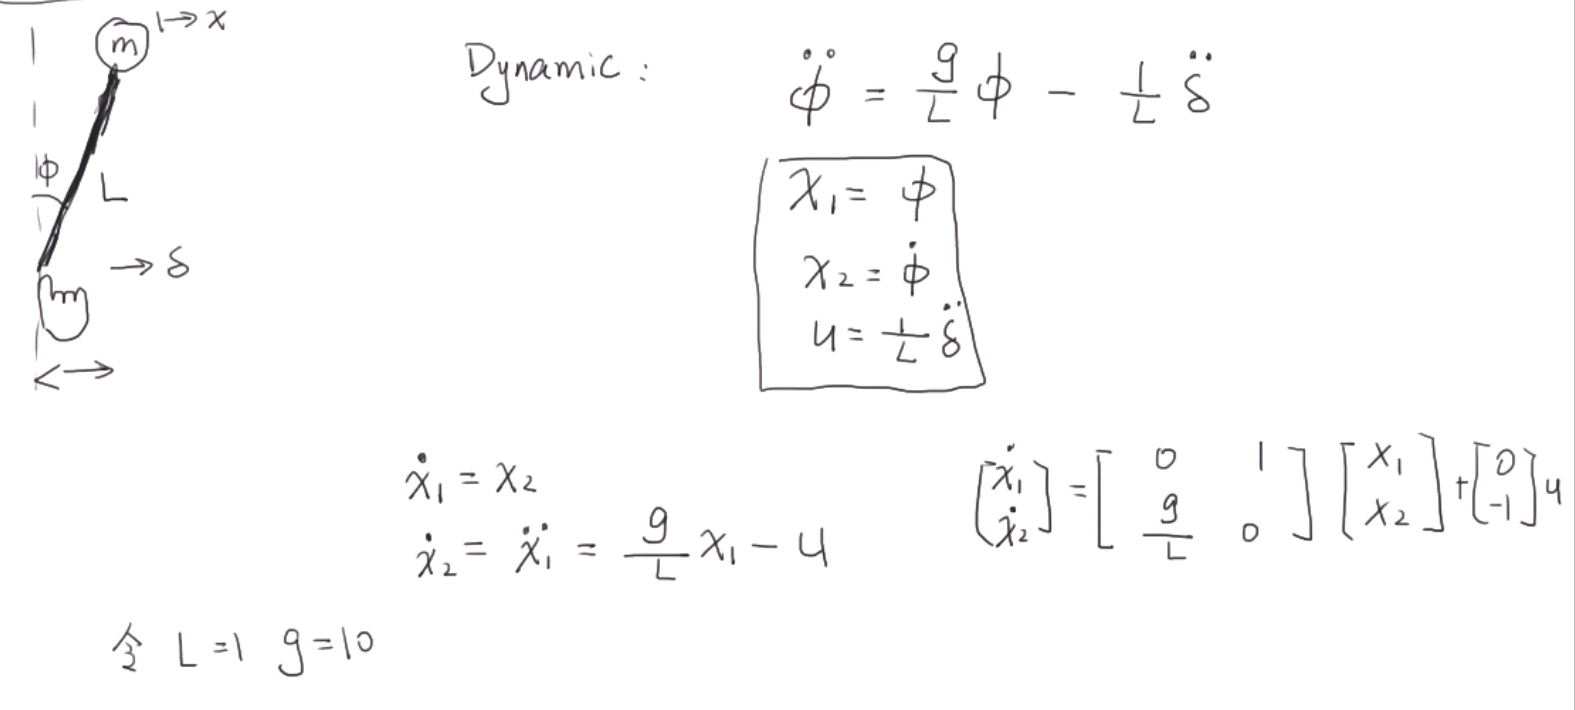 m → x
φ
L
→ δ
Dynamic : φ̈ = g/L φ - 1/L δ̈
x₁ = φ
x₂ = φ̇
u = 1/L δ̈
ẋ₁ = x₂
ẋ₂ = ẍ₁ = g/L x₁ - u
[ẋ₁ ẋ₂] = [0 1 g/L 0] [x₁ x₂] + [0 -1] u
令 L=1 g=10